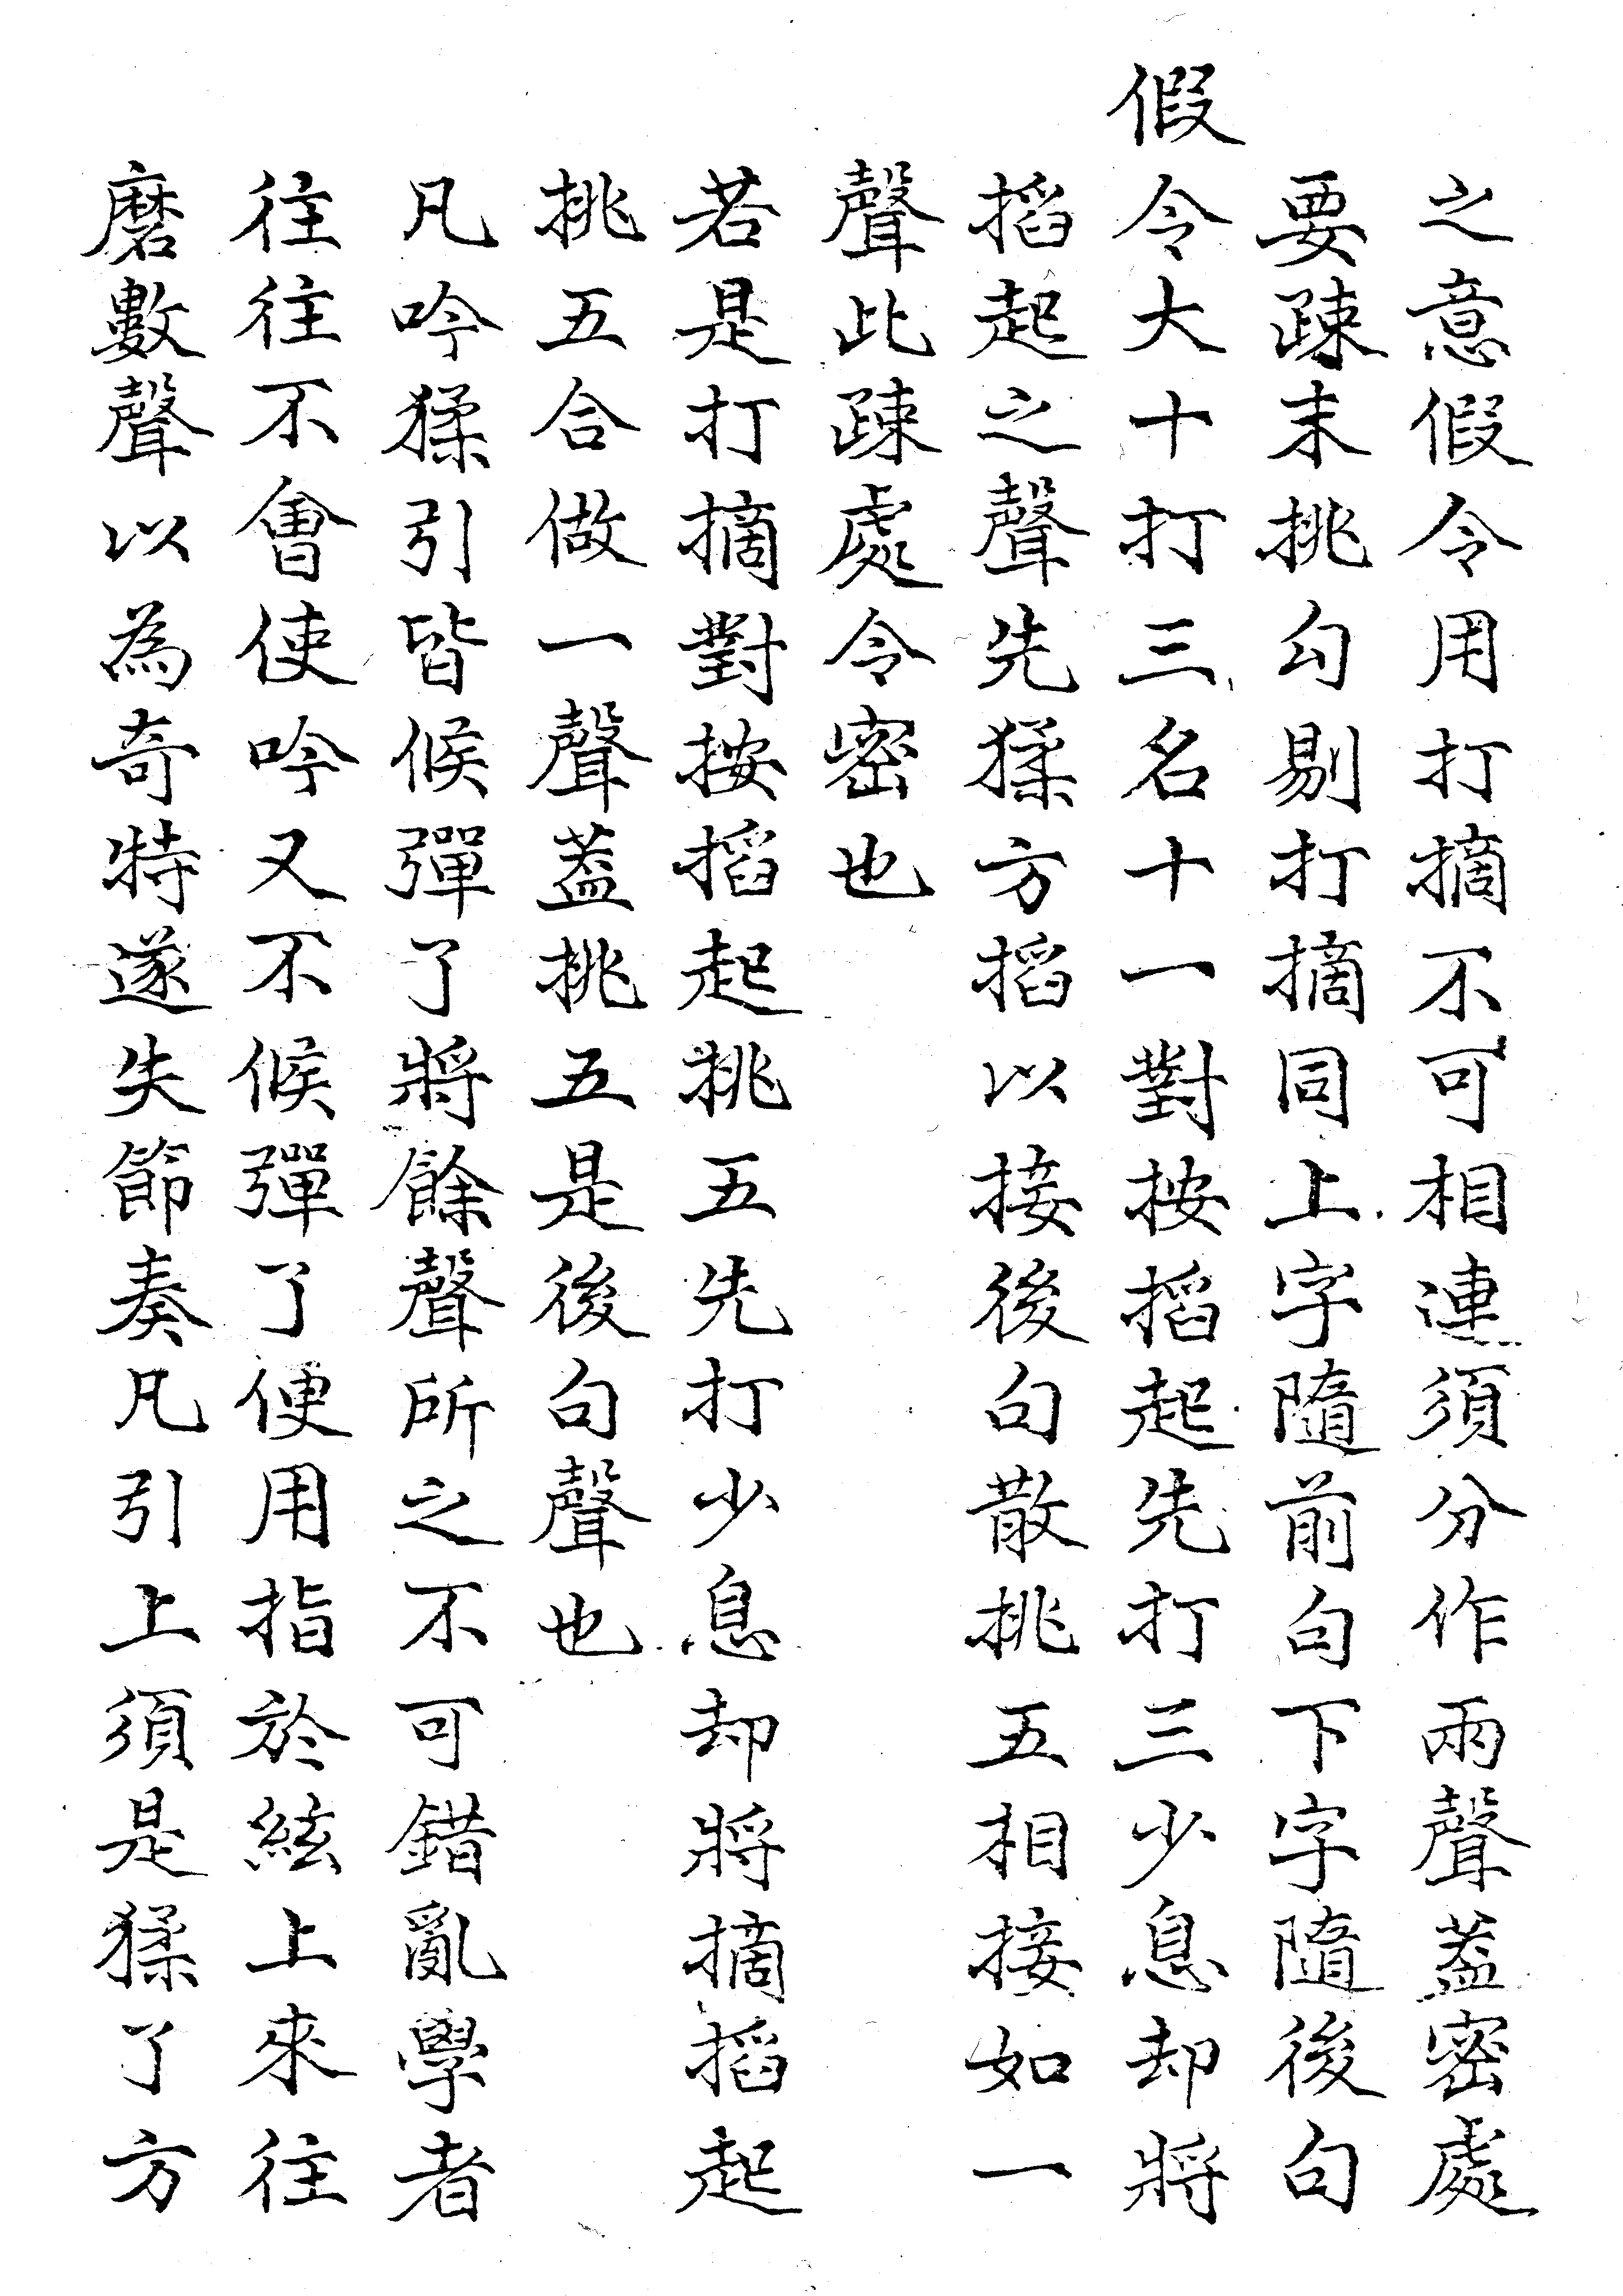 之意假令用打摘不可相連須分作兩聲蓋密處
要疎末挑勾剔打摘同上字隨前句下字隨後句
假令大十打三名十一對按搯起先打三少息却將
搯起之聲先猱方搯以接後句散挑五相接如一
聲此疎處令密也
若是打摘對按搯起挑五先打少息却將摘搯起
挑五合做一聲蓋挑五是後句聲也
凡吟猱引皆候彈了將餘聲所之不可錯亂學者
往往不會使吟又不候彈了便用指於絃上來往
磨數聲以為奇特遂失節奏凡引上須是猱了方